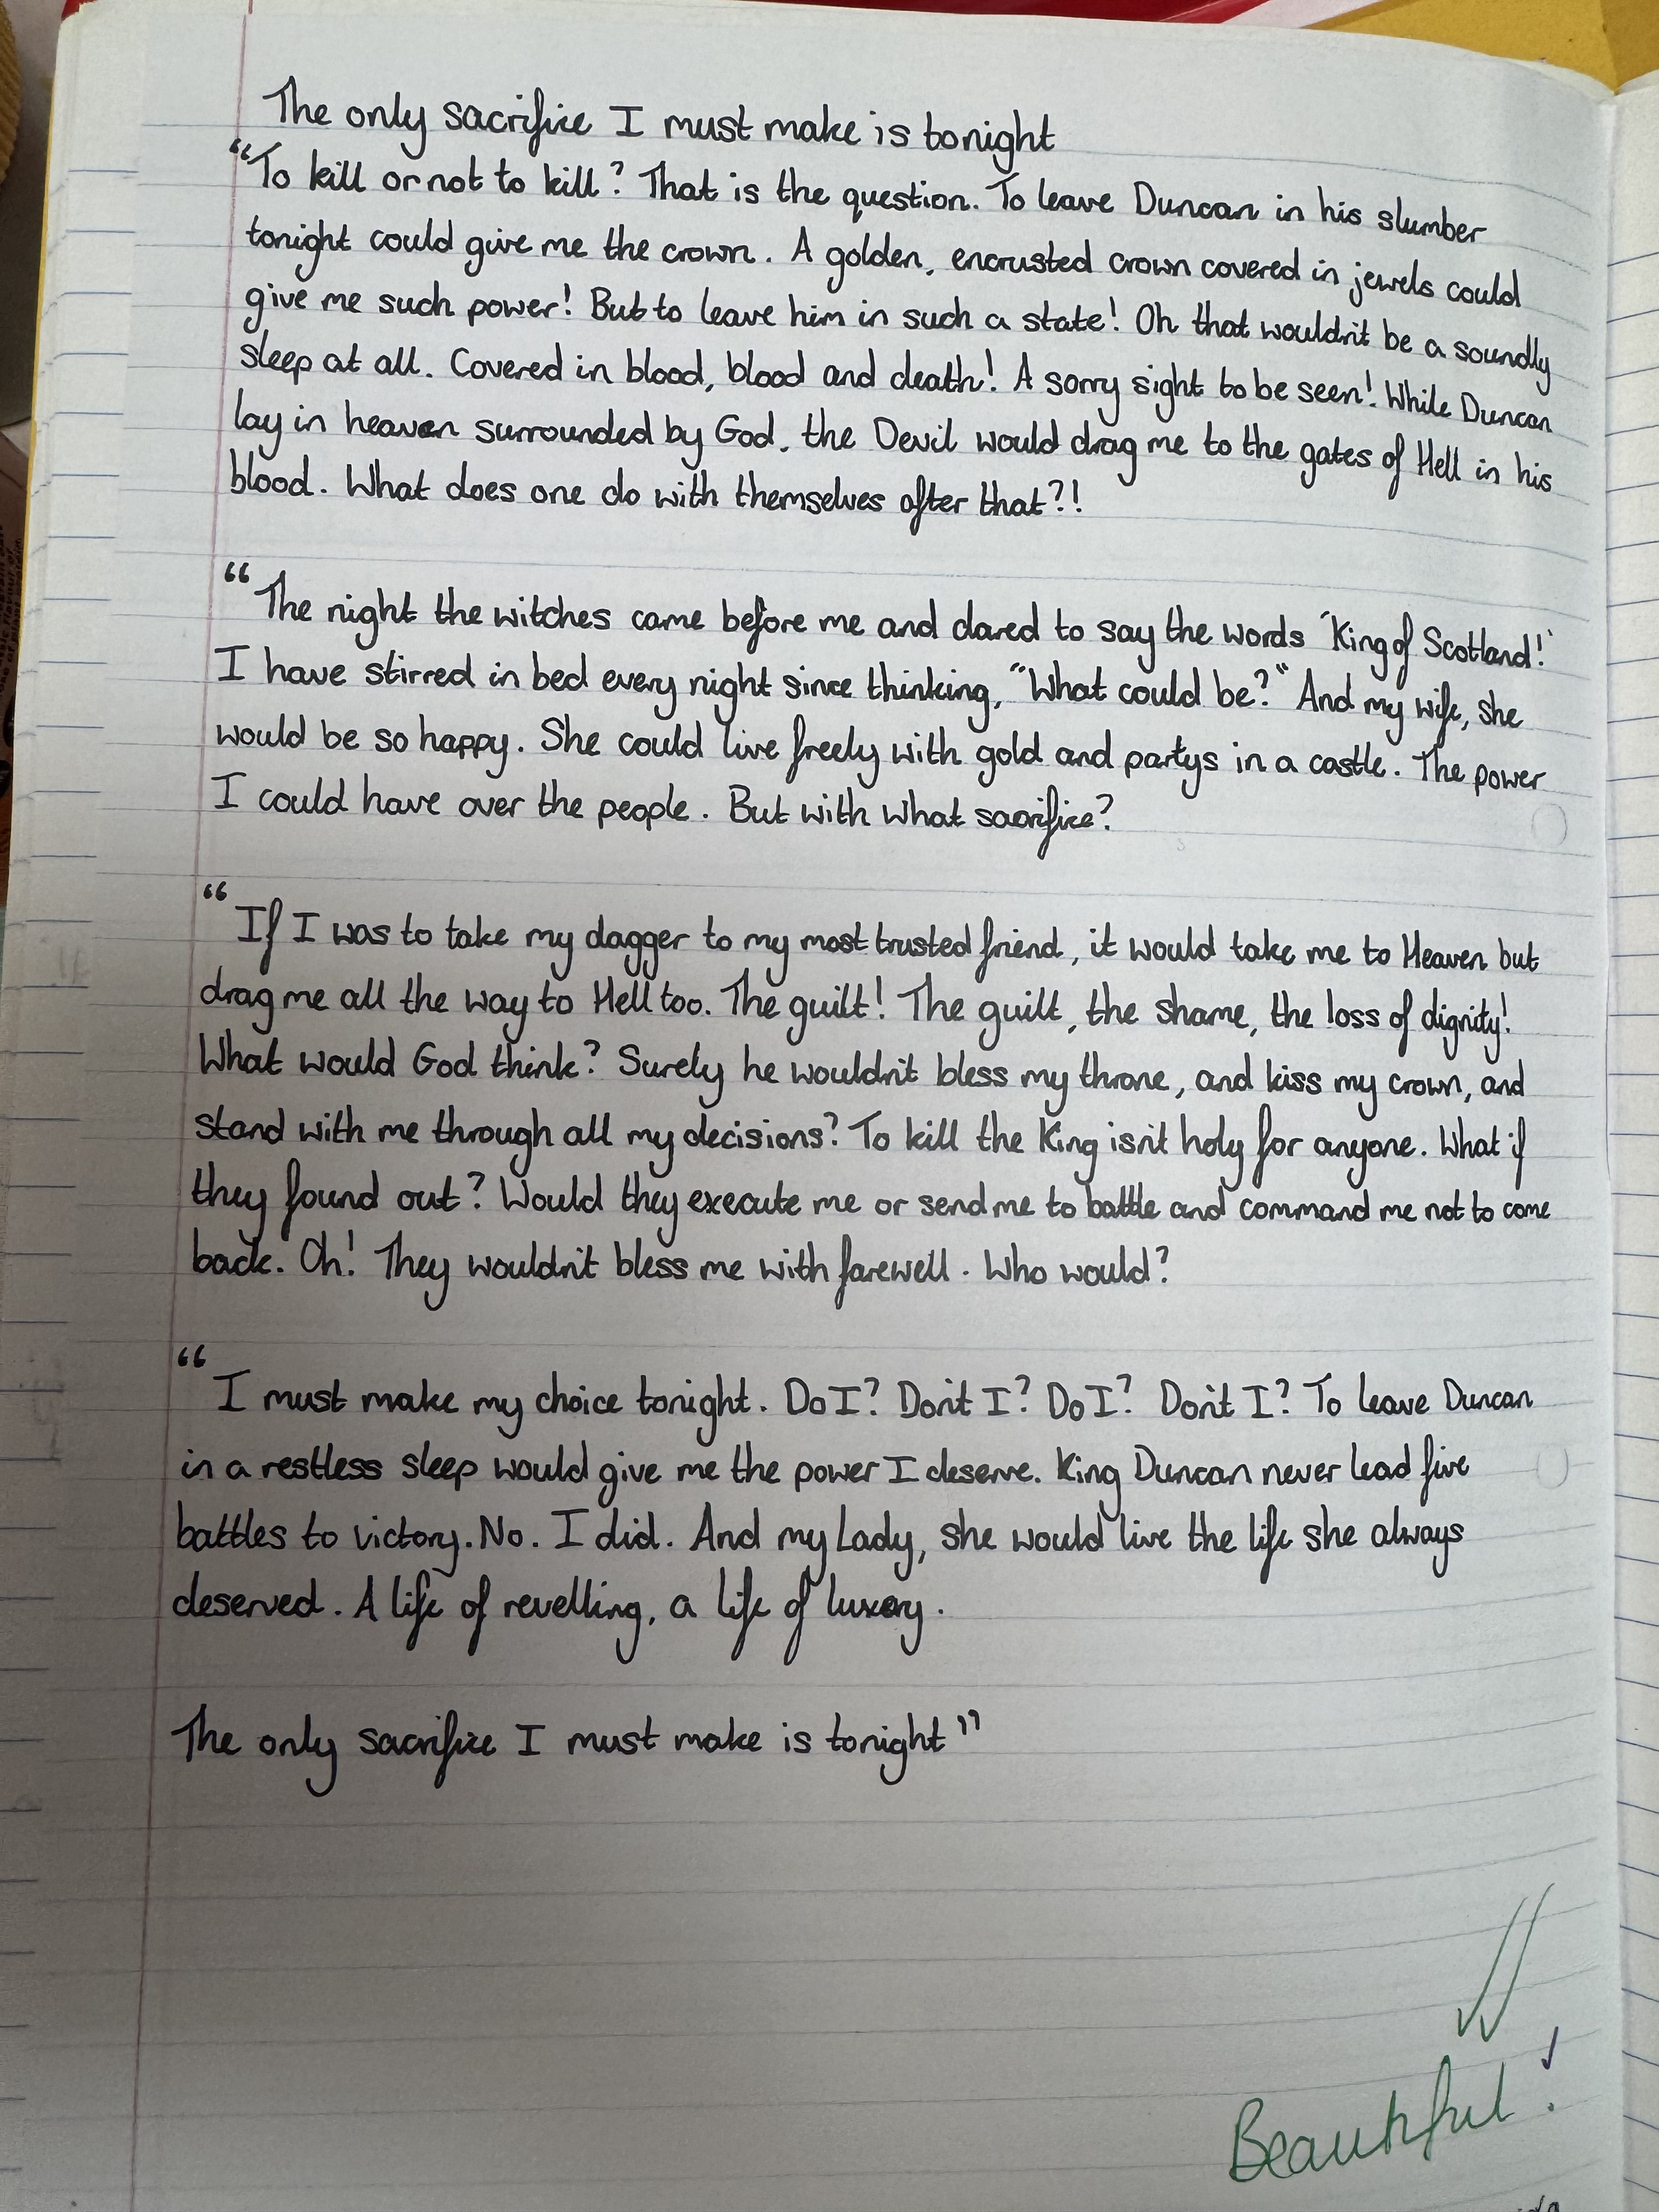 The only sacrifice I must make is tonight
“To kill or not to kill? That is the question. To leave Duncan in his slumber
tonight could give me the crown. A golden, encrusted crown covered in jewels could
give me such power! But to leave him in such a state! Oh that wouldn't be a soundly
sleep at all. Covered in blood, blood and death! A sorry sight to be seen! While Duncan
lay in heaven surrounded by God, the Devil would drag me to the gates of Hell in his
blood. What does one do with themselves after that?!
“The night the witches came before me and dared to say the words 'King of Scotland!'
I have stirred in bed every night since thinking, "What could be?" And my wife, she
would be so happy. She could live freely with gold and partys in a castle. The power
I could have over the people. But with what sacrifice?
“If I was to take my dagger to my most trusted friend, it would take me to Heaven but
drag me all the way to Hell too. The guilt! The guilt, the shame, the loss of dignity!
What would God think? Surely he wouldn't bless my throne, and kiss my crown, and
stand with me through all my decisions? To kill the King isn't holy for anyone. What if
they found out? Would they execute me or send me to battle and command me not to come
back. Oh! They wouldn't bless me with farewell. Who would?
“I must make my choice tonight. Do I? Don't I? Do I? Don't I? To leave Duncan
in a restless sleep would give me the power I deserve. King Duncan never lead five
battles to victory. No. I did. And my Lady, she would live the life she always
deserved. A life of revelling, a life of luxury.
The only sacrifice I must make is tonight”
Beautiful!